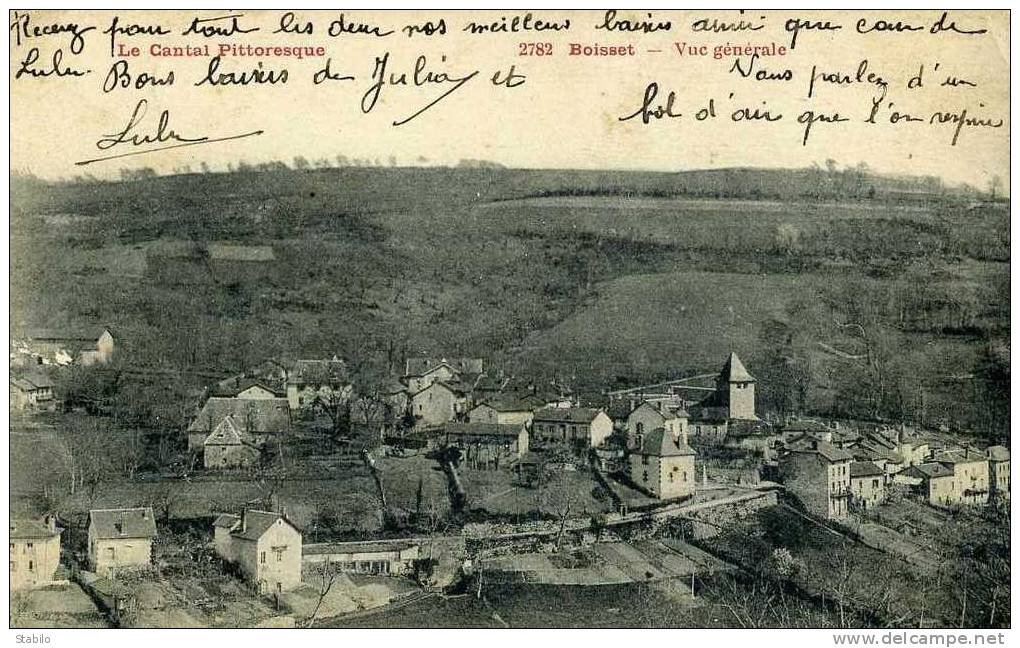 Recevez pour tout les deux nos meilleurs baisers ainsi que ceux de
Le Cantal Pittoresque
2782 Boisset — Vue générale
Lulu. Bons baisers de Julia et
Lulu
Vous parlez d'un
bol d'air que l'on respire
Stabilo
www.delcampe.net